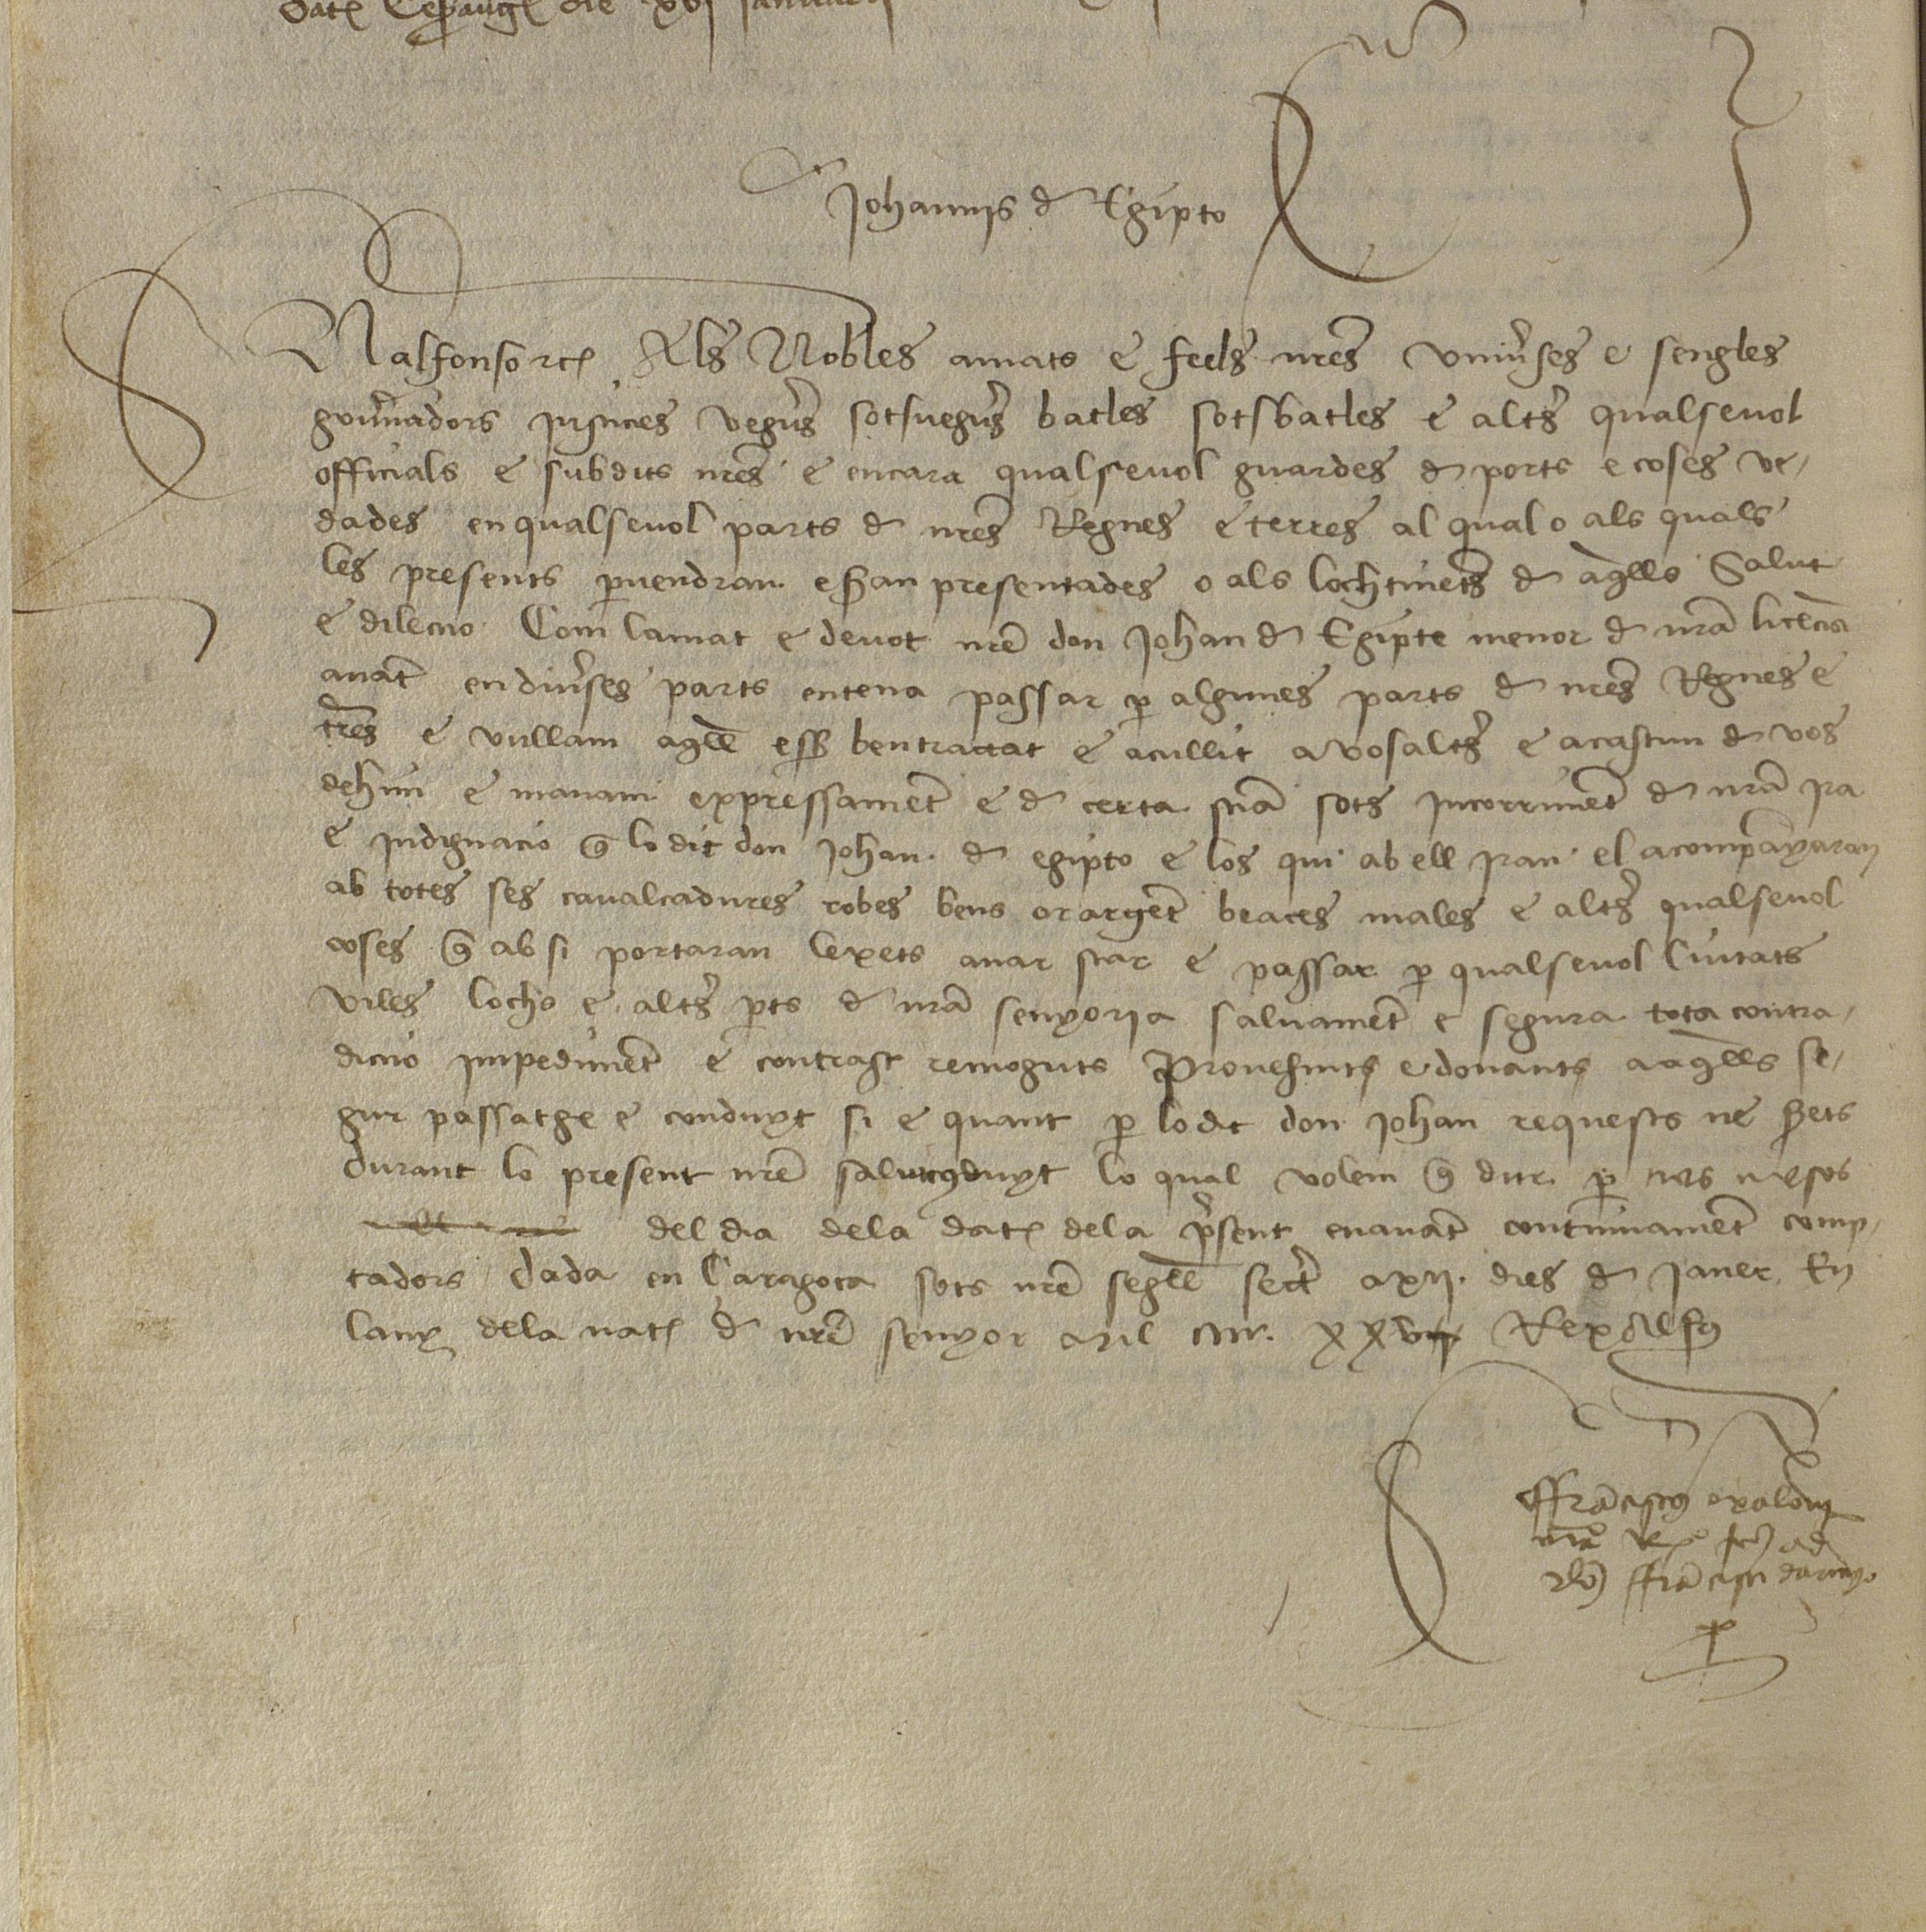 Johannis de Egipto
N alfonso etc Als Nobles amats e feels nres universes e sengles
governadors justices veguers sotsveguers batles sotsbatles e altres qualsevol
officials e subdits nres e encara qualsevol guardes de ports e coses ve
dades en qualsevol parts de nres Regnes e terres al qual o als quals
les presents pervendran e seran presentades o als lochtinents de aquells Salut
e dileccio Com lamat e devot nre don Johan de Egipte menor de nra licencia
anant en diverses parts entena passar per algunes parts de nres Regnes e
tres e vullam aquell esser ben tractat e acullit a vosaltres e a cascun de vos
dehim e manam expressament e de certa sciencia sots incorriment de nra ira
e indignacio que lo dit don Johan de egipto e los qui ab ell iran el acompanyaran
ab totes ses cavalcadures robes bens or argent beaces males e altres qualsevol
coses que ab si portaran lexets anar star e passar per qualsevol Ciutats
viles lochs e altres parts de nra senyoria salvament e segura tota contra
diccio impediment e contrast remoguts Provehints e donants a aquells se
gur passatge e conduyt si e quant per lo dit don Johan requests ne serets
durant lo present nre salvconduyt lo qual volem que dur per tres mesos
del dia dela dat dela present enavant continuament comp
tadors dada en Caragoca sots nre segell secret a xij dies de Janer En
lany dela nat de nre senyor Mil CCCC XXV Rex Alfonsus